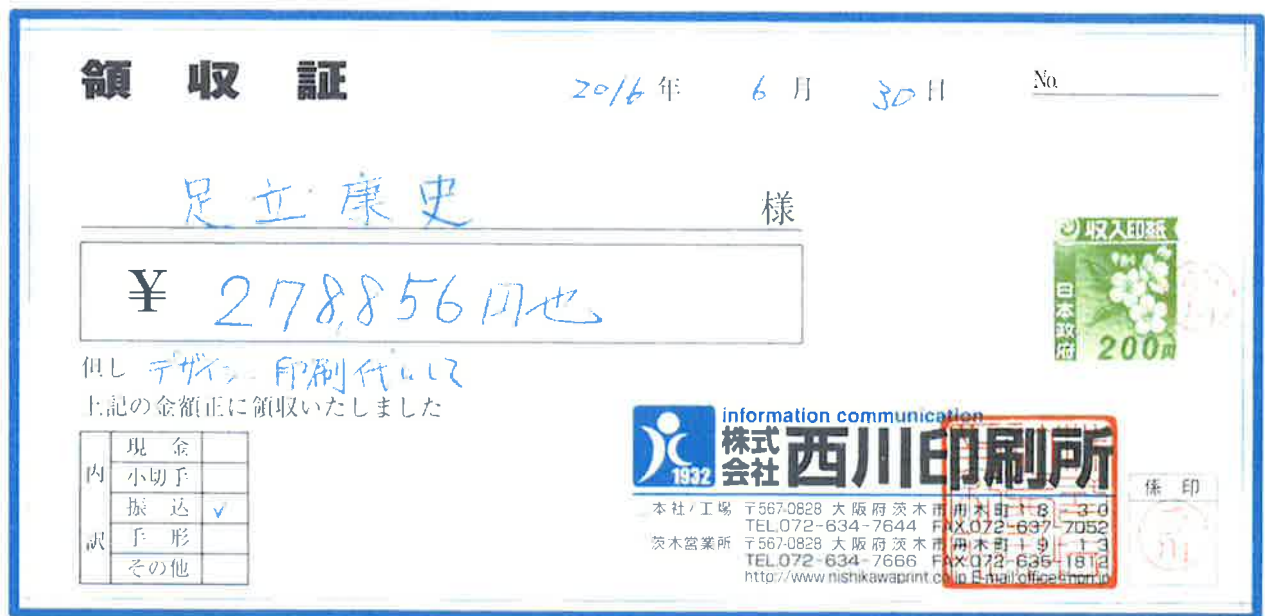 領収証
2016年 6月 30日 No.
足立康史 様
¥ 278,856円也
但し デザイン・印刷代として
上記の金額正に領収いたしました
収入印紙
日本政府
200円
内訳
現金
小切手
振込 ✓
手形
その他
information communication
1932
株式会社 西川印刷所
本社/工場 〒567-0828 大阪府茨木市舟木町18-30
TEL,072-634-7644 FAX,072-637-7052
茨木営業所 〒567-0828 大阪府茨木市舟木町19-13
TEL.072-634-7666 FAX.072-635-1812
http://www.nishikawaprint.co.jp E-mail:office@npn.jp
係印